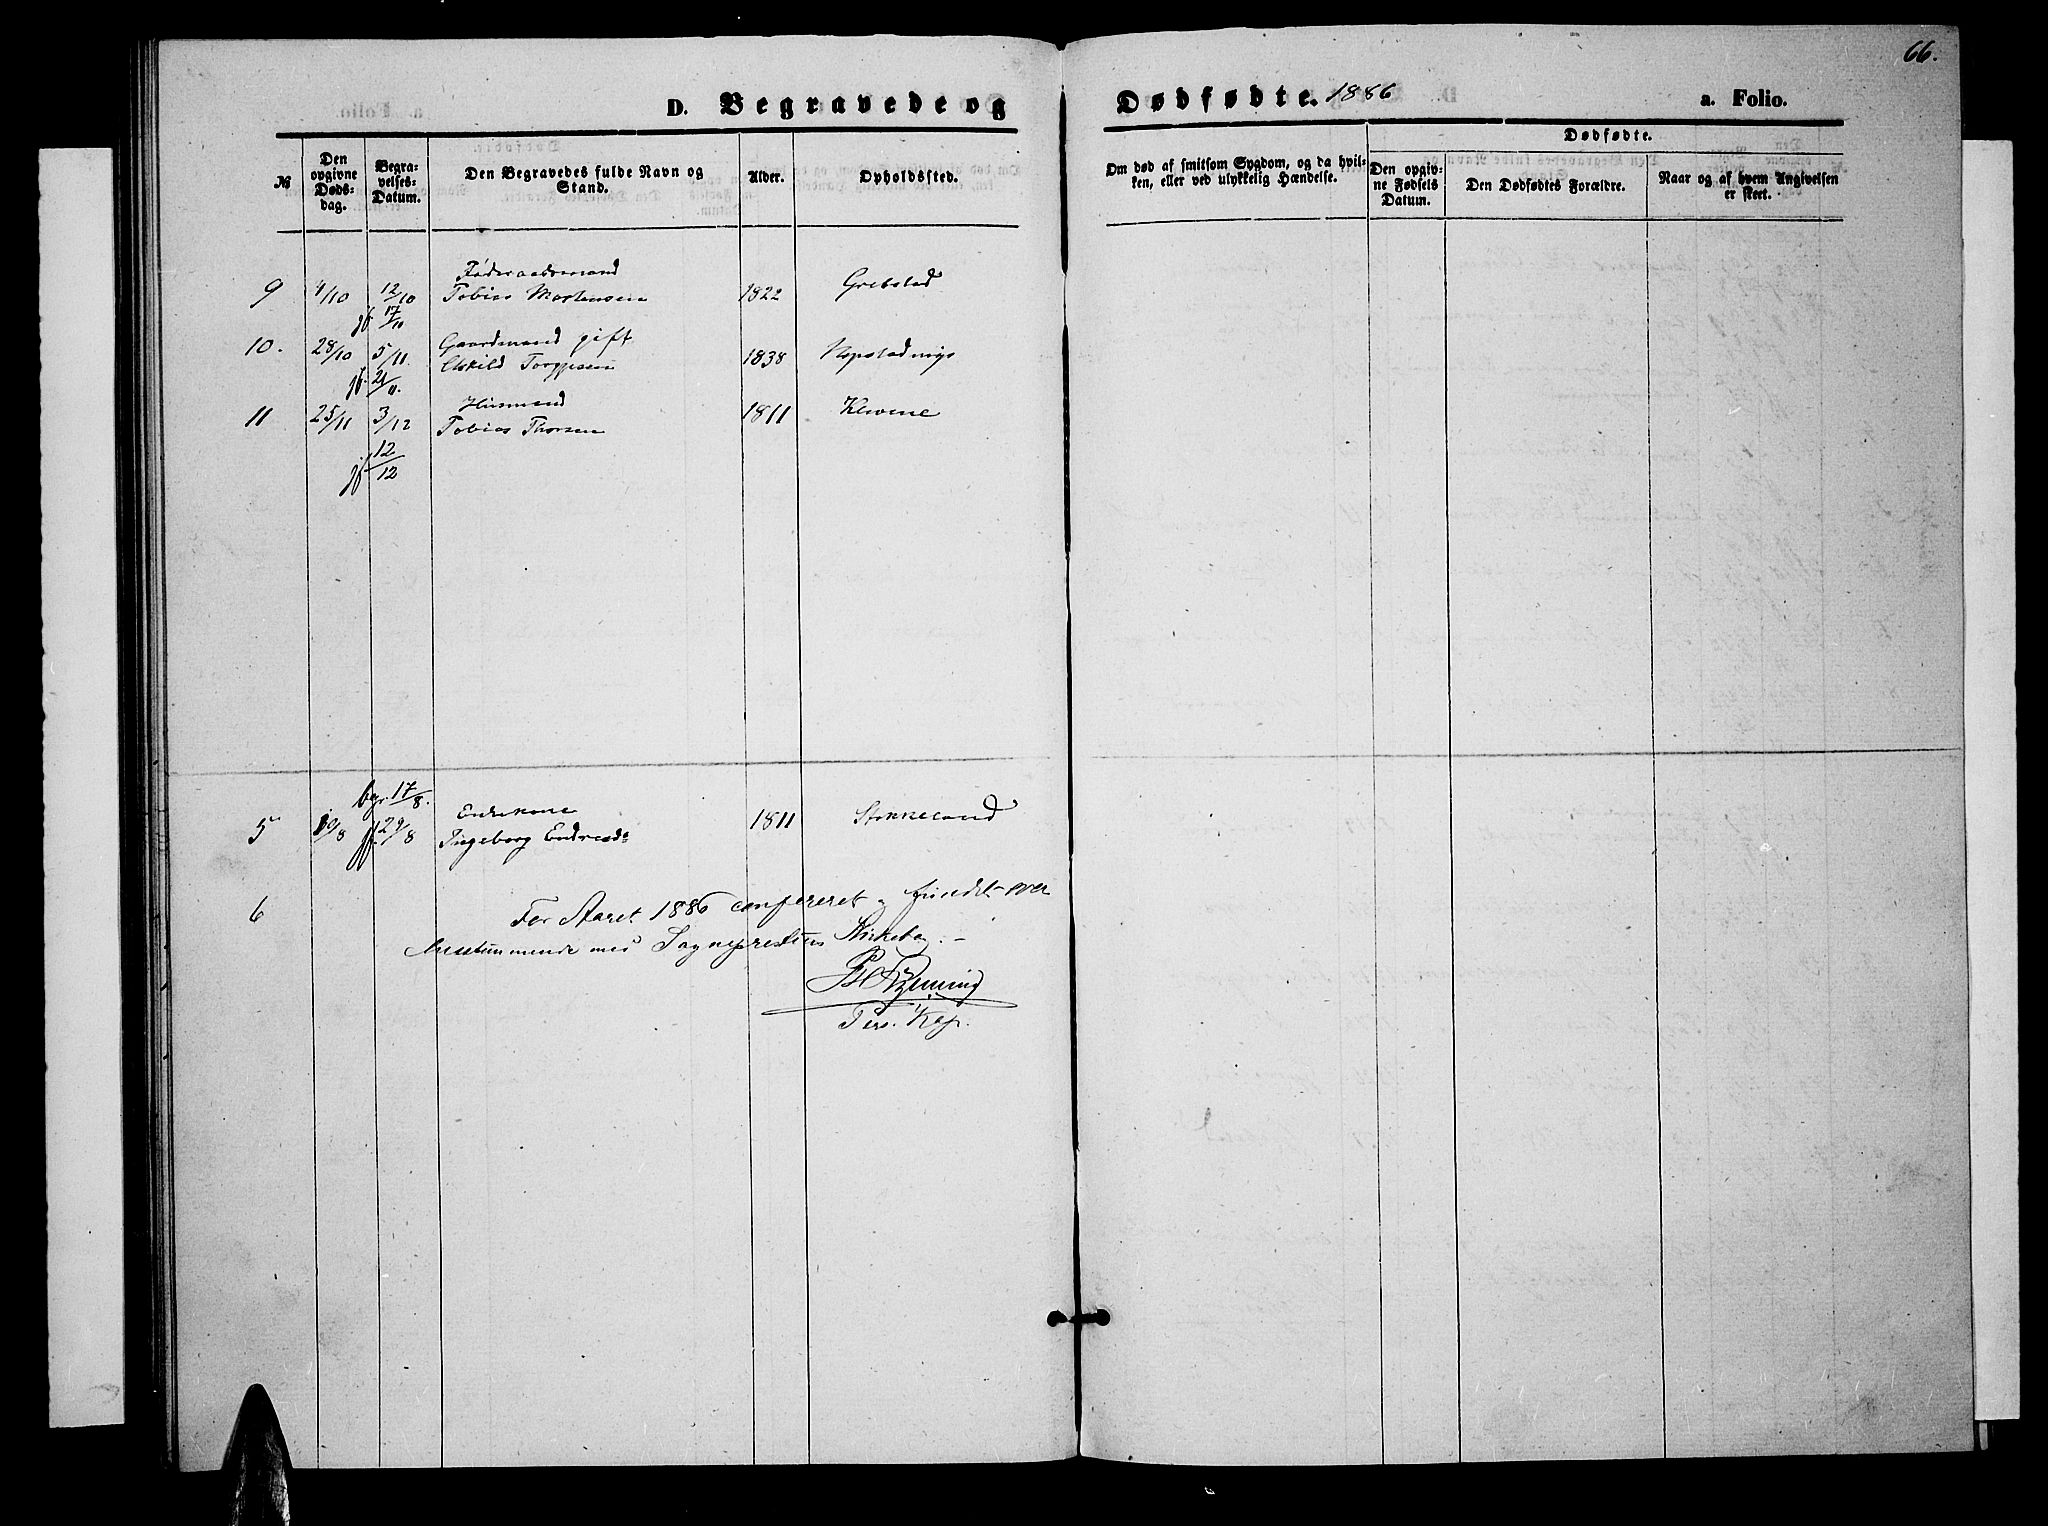 66.
D. Begravede og Dødfødte. 1886 a. Folio.
№
Den opgivne Døds-dag.
Begra-velses-Datum.
Den Begravedes fulde Navn og Stand.
Alder.
Opholdssted.
Om død af smitsom Sygdom, og da hvil-ken, eller ved ulykkelig Hændelse.
Dødfødte.
Den opgiv-ne Fødsels Datum.
Den Dødfødtes Forældre.
Naar og af hvem Angivelsen er skeet.
Føderaadsmand
9 4/10 12/10 Tobias Mortensen 1822 Grebstad
jf. 17/10
10. 28/10 5/11. Gaardmand gift
Eskild Torgjusen 1838
jf. 21/11.
Husmand
11 25/11 3/12 Tobias Thorsen 1811 Klevene
jf. 12/12
bgr. 17/8.
Enkekone
5 10/8 jf. 29/8 Ingeborg Endresd: 1811 Stokkeland
6
For Aaret 1886 confereret og fundet over
eensstemmende med Sogneprestens Kirkebog. –
Pers. Kap.